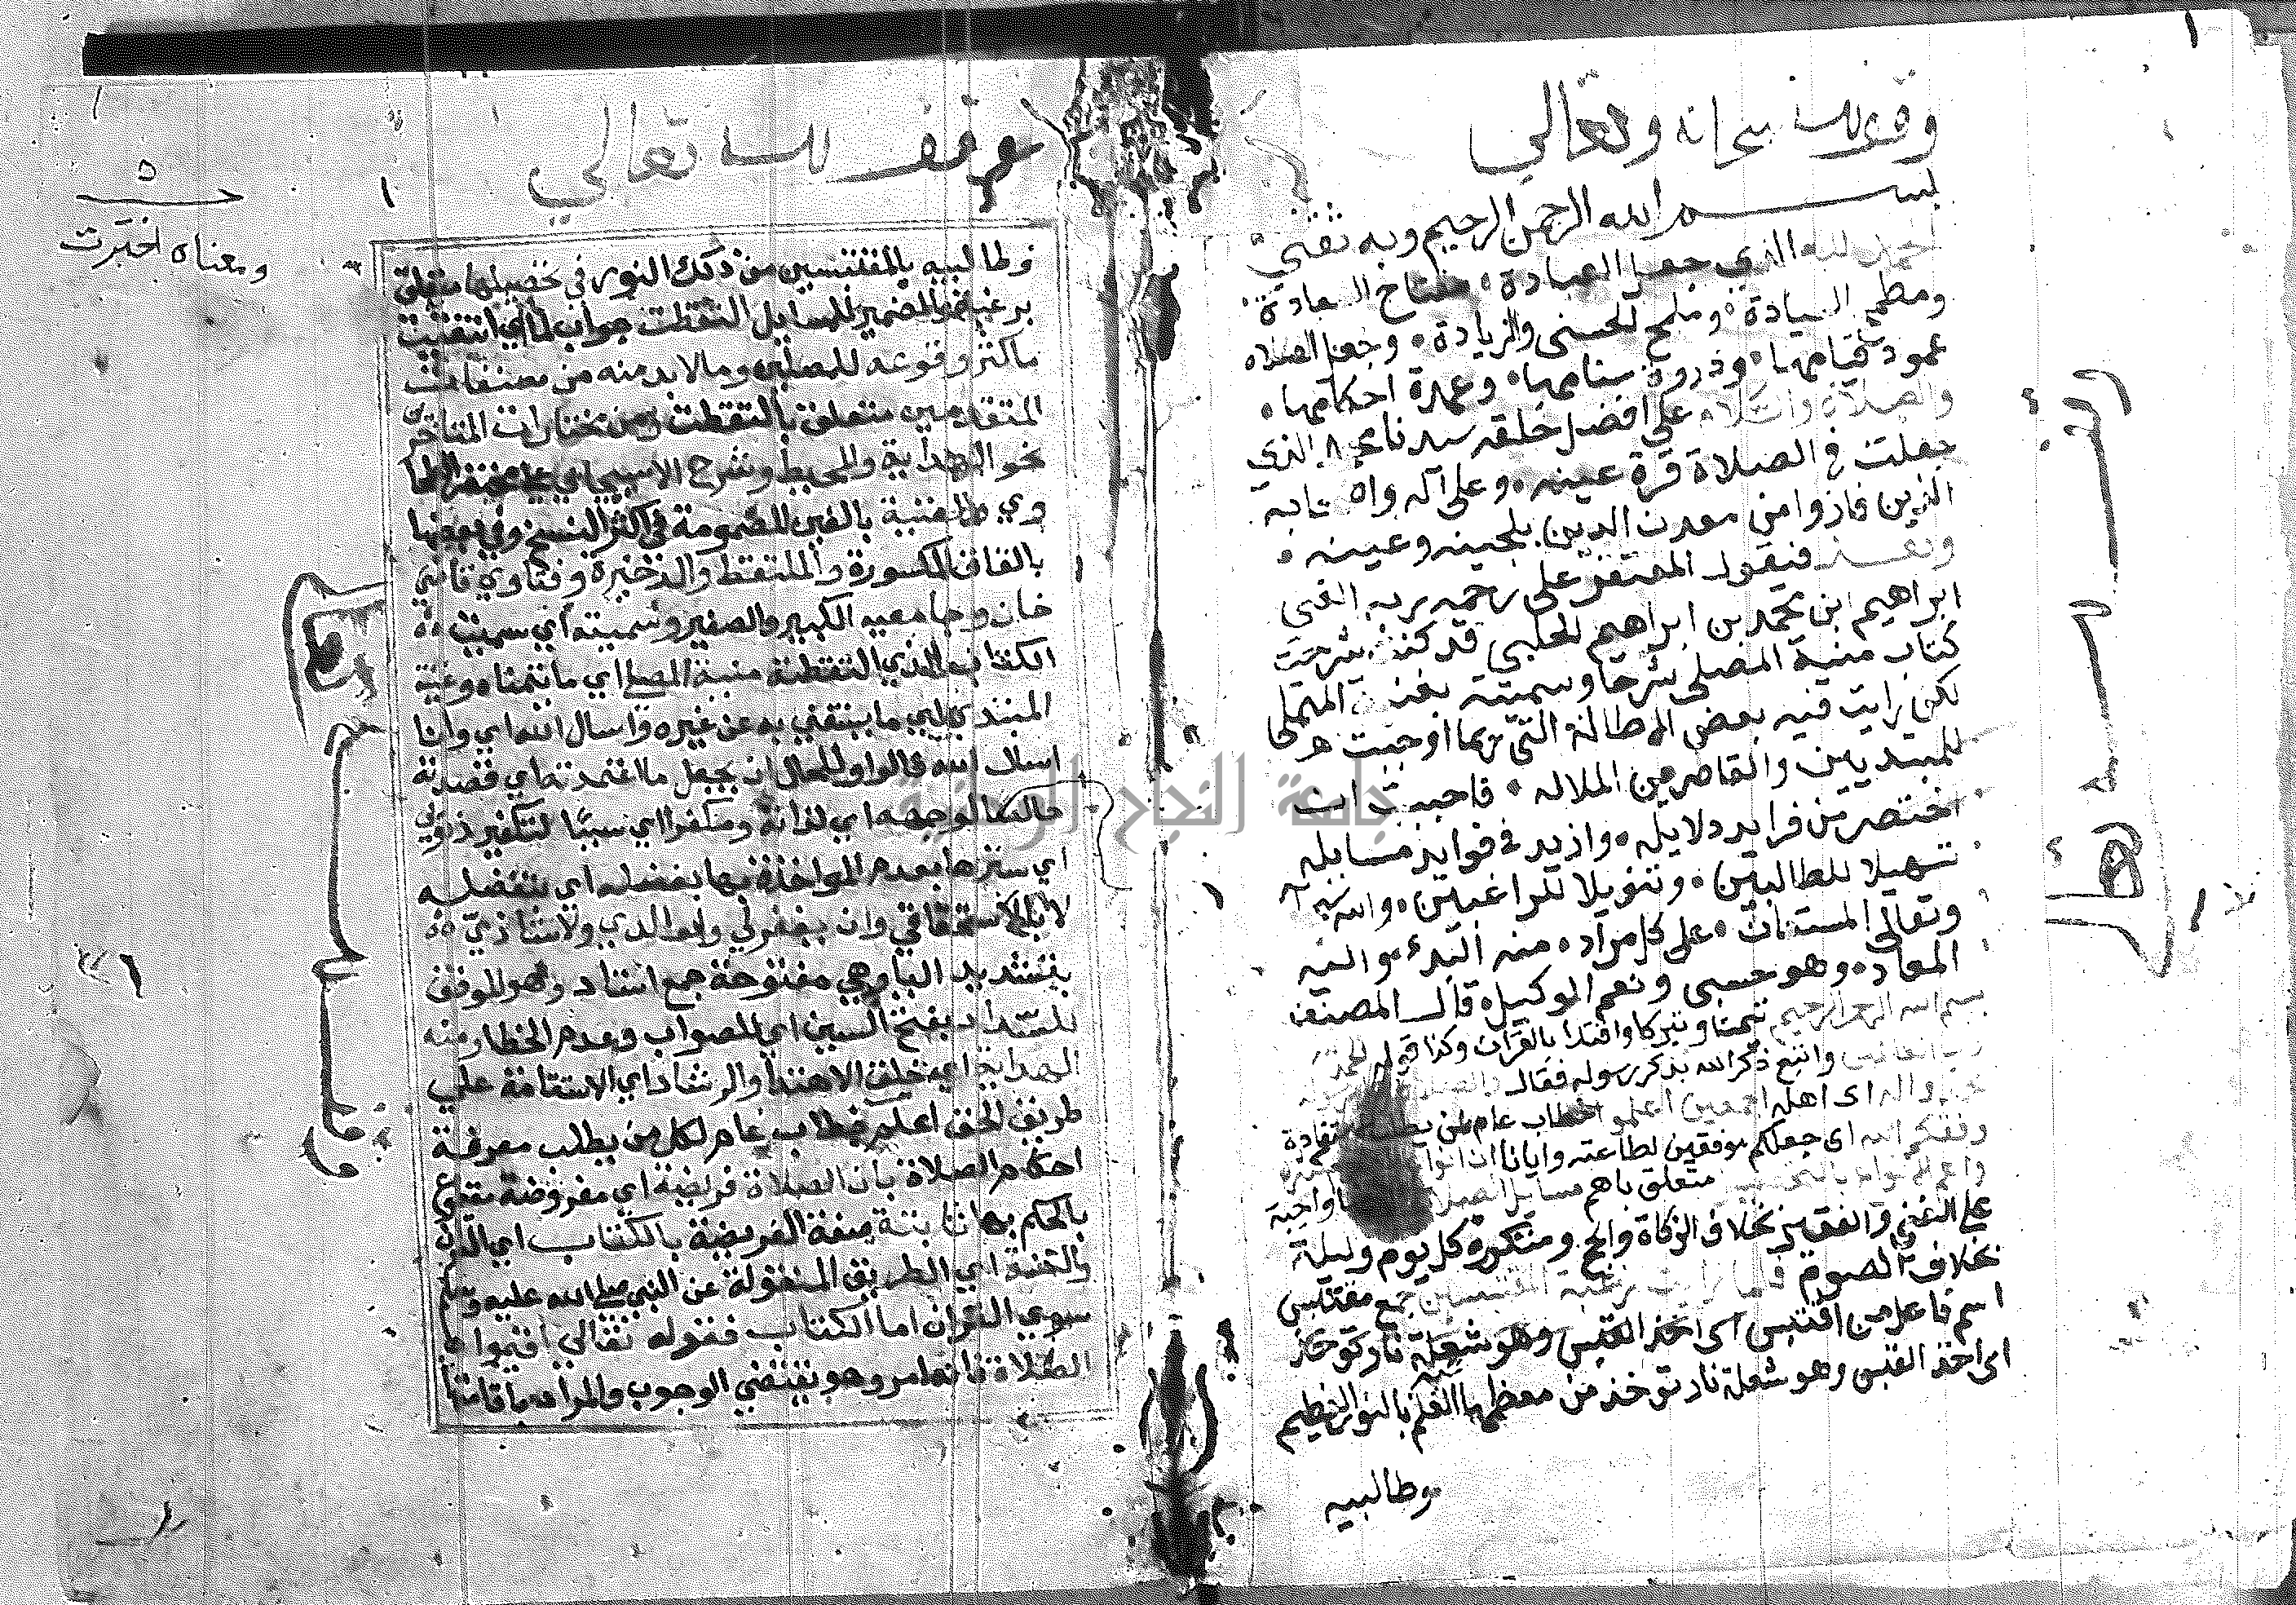 وقف لله سبحانه وتعالى
بسم الله الرحمن الرحيم وبه ثقتي
الحمد لله الذي جعل العبادة مفتاح السعادة
ومطمح السيادة وملمح الحسنى والزيادة وجعل الصلاه
عمود قيامها وذروة سنامها وعمدة احكامها
والصلاة والسلام على افضل خلقه سيدنا محمد الذي
جعلت في الصلاة قرة عينه وعلى آله واصحابه
الذين فازوا من معدن الدين بلجينه وعينه
وبعد فيقول المفتقر على رحمه ربه الغني
ابراهيم ابن محمد بن ابراهيم الحلبي قد كنت شرحت
كتاب منية المصلى شرحا وسميته المتملي
لكن رايت فيه بعض الاطالة التي ربما اوجبت
للمبتديين والقاصرين الملاله فاحببت ان
اختصر من فرايد دلايله وازيد في فوايد مسايله
تسهيلا للطالبين وتنويلا للراغبين والله سبحانه
وتعالى المستعان على كل مراد منه البدء واليه
المعاد وهو حسبي ونعم الوكيل قال المصنف
بسم الله الرحمن الرحيم تيمنا وتبركا واقتدا بالقران وكذا قوله الحمد لله
رب العالمين واتبع ذكر الله بذكر رسوله فقال والصلاة
واله اى اهله اجمعين اعلموا خطاب عام لمن
وفقكم الله اى جعلكم موفقين لطاعته وايانا ان انواع
متعلق باهم مسايل الصلاة واجبة
على الغني والفقير بخلاف الزكاة والحج ومتكررة كل يوم وليلة
بخلاف الصوم فلما رايت رغبة المقتبسين جمع مقتبس
اسم فاعل من اقتبس اى اخذ القبس وهو شعلة نار توخذ
اى اخذ القبس وهو شعلة نار توخذ من معظمها العلم بالنور العظيم
وطالبيه
وقف لله تعالى
وطالبيه بالمقتبسين من ذلك النور في تحصيلها متعلق
برغبة والضمير للمسايل التقطت جواب لما اي انتقيت
ما كثر وقوعه للمصلين وما لا بد منه من مصنفات
المتقدمين متعلق بالتقطت ومن مختارات المتاخرين
نحو الهداية والمحيط وشرح الاسبيجابي على مختصر الطحا
وي والغنية بالغين المضمومة في اكثر النسخ وفي بعضها
بالقاف المكسورة والملتقط والذخيرة وفتاوي قاضي
خان وجامعيه الكبير والصغير وسميته اي سميت
الكتاب الذي التقطته منية المصلي اي ما يتمناه وغنية
المبتدي اي ما يستغني به عن غيره واسال الله اي وانا
اسال الله فالواو للحال ان يجعل ما اعتمدته اي قصدته
خالصا لوجهه اي لذاته ومكفرا اي سببا لتكفير ذنوبي
اي سترها بعدم المواخذة بها بفضله اي بتفضله
لا باستحقاقي وان يغفر لي ولوالدي ولاستاذي
بتشديد اليا وهي مفتوحة جمع استاد وهو الموفق
للسداد بفتح السين اي للصواب وعدم الخطا ومنه
الهداية اي خلق الاهتدا والرشاد اي الاستقامة علي
طريق الحق اعلم خطاب عام لكل من يطلب معرفة
احكام الصلاة بان الصلاة فريضة اي مفروضة مقطوع
بالحكم بها ثابتة صفة الفريضة بالكتاب اي القران
والسنة اي الطريق المنقولة عن النبي صلى الله عليه وسلم
سوي القران اما الكتاب فقوله تعالى اقيموا
الصلاة فانه امر وهو يقتضي الوجوب والمراد باقامتها
ومعناه اختبرت
جامعة النجاح الوطنية